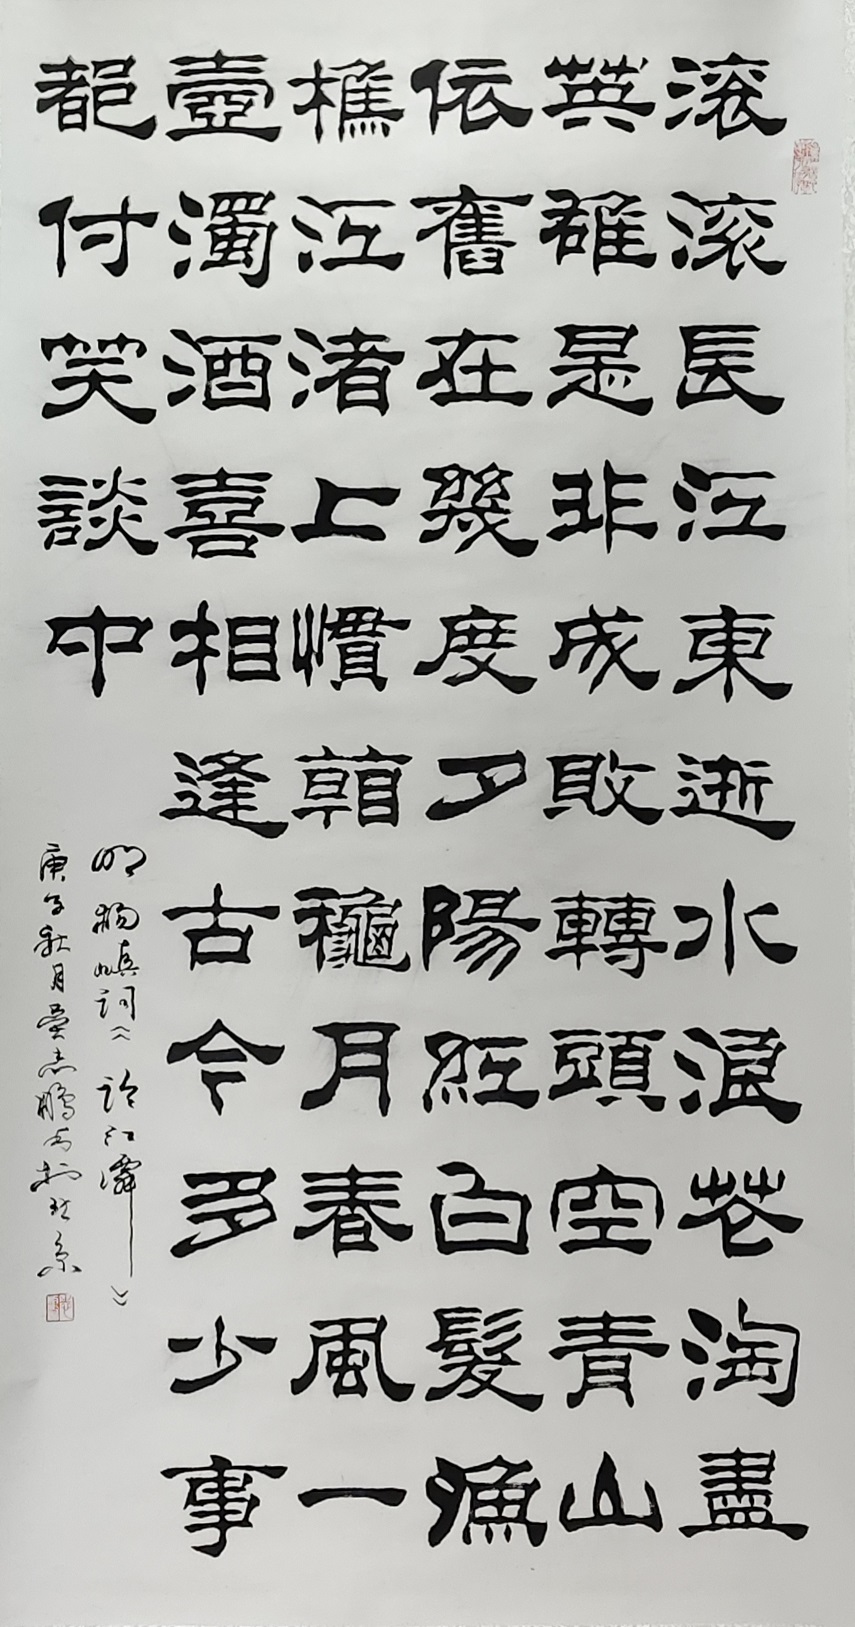 滚滚長江東逝水浪花淘盡
英雄是非成敗轉頭空青山
依舊在幾度夕陽紅白髮漁
樵江渚上慣朝龝月春風一
壺濁酒喜相逢古今多少事
都付笑談中
明楊慎詞《臨江》
庚子秋月志鵬書於北京